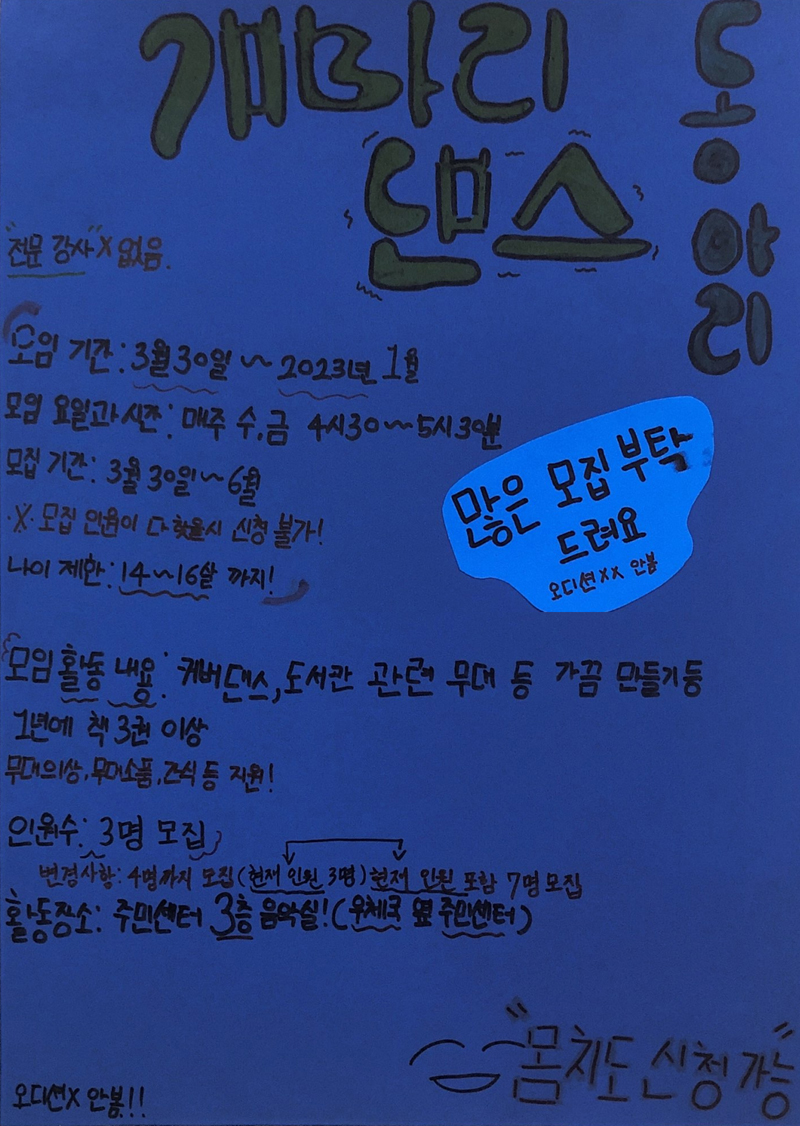 개마리
댄스
동아리
"전문 강사" X 없음.
모임 기간: 3월 30일 ~ 2023년 1월
모임 요일과 시간: 매주 수,금 4시30~5시30분
모집 기간: 3월 30일~6월
·X· 모집 인원이 다 찾을시 신청 불가!
나이 제한: 14~16살 까지!
많은 모집 부탁
드려요
오디션XX 안봄
모임 활동 내용: 커버댄스, 도서관 관련 무대 등 가끔 만들기 등
1년에 책 3권 이상
무대의상, 무대소품, 간식 등 지원!
인원수: 3명 모집
변경사항: 4명까지 모집(현재 인원 3명) 현재 인원 포함 7명 모집
활동장소: 주민센터 3층 음악실! (우체국 옆 주민센터)
"몸치도 신청 가능"
오디션X 안봄!!